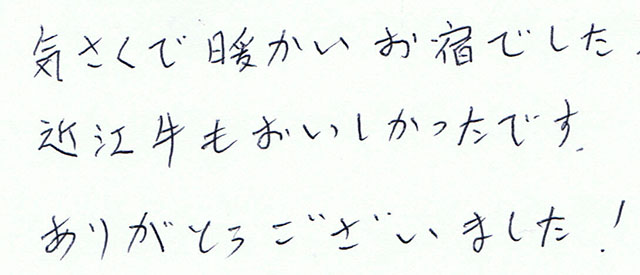 気さくで暖かいお宿でした.
近江牛もおいしかったです.
ありがとうございました!